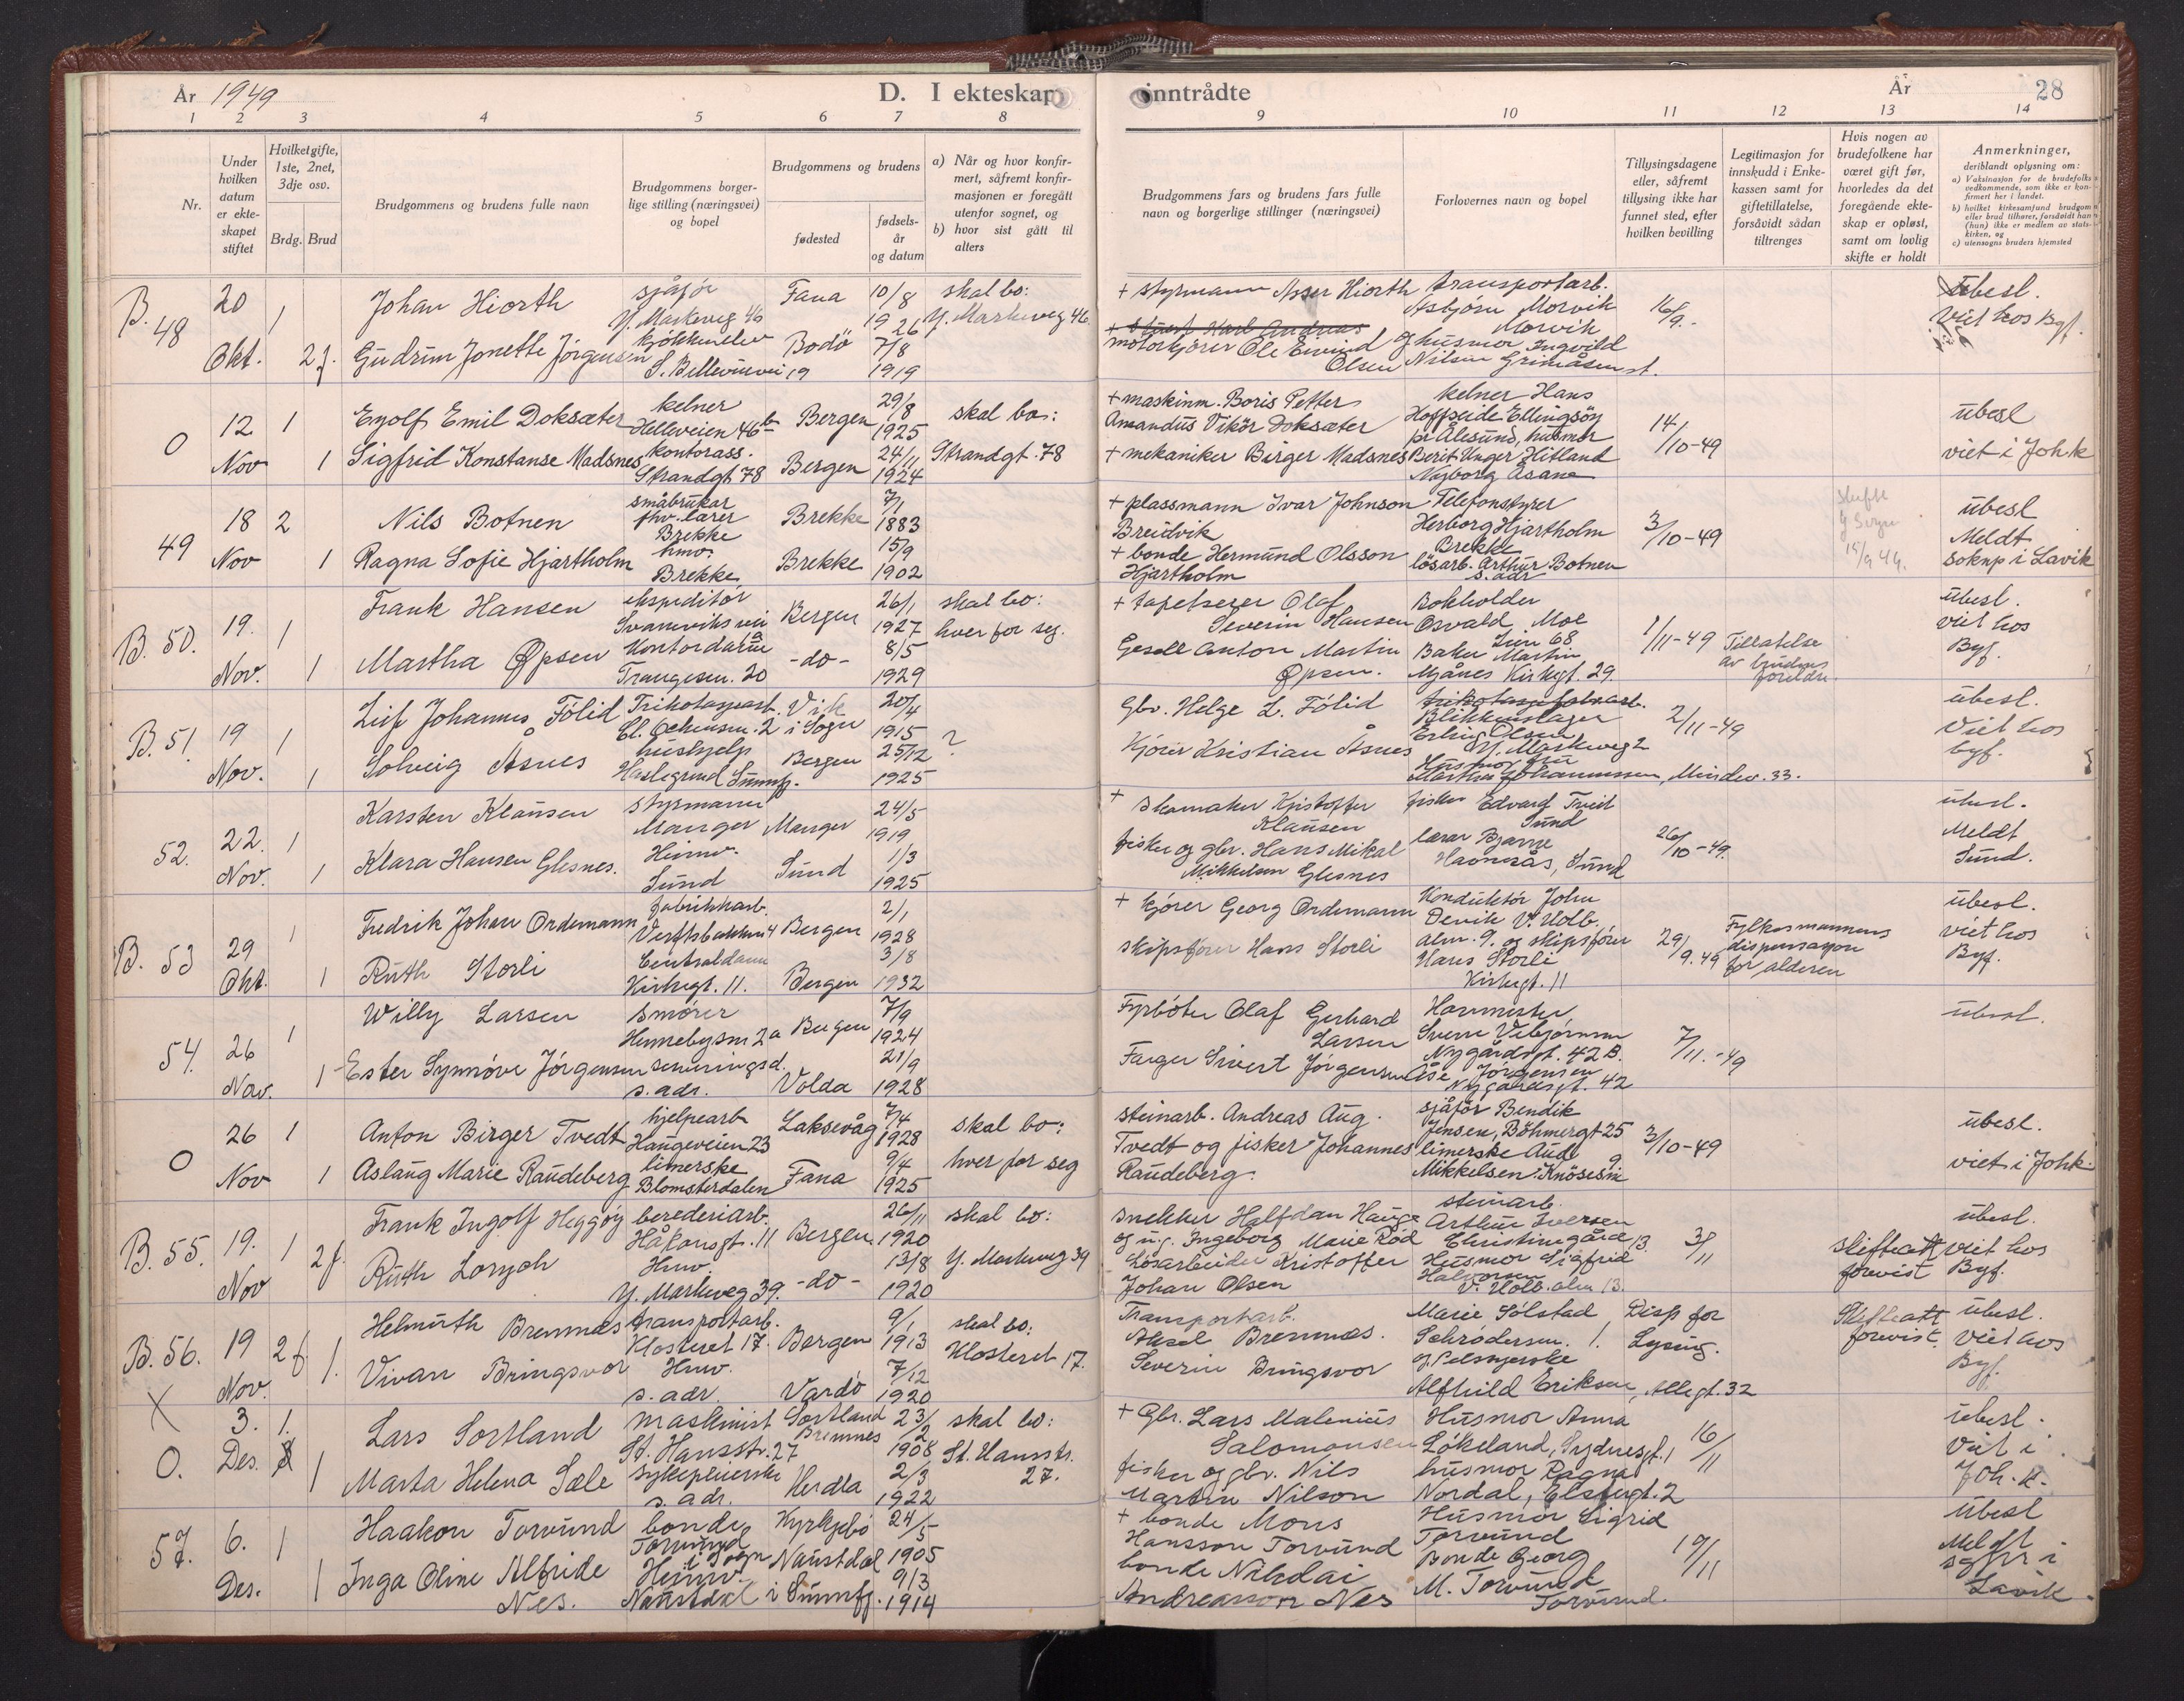 År 1949
D. I ekteskap inntrådte
År
28
1 2 3 4 5 6 7 8 9 10 11 12 13 14
Nr.
Under hvilken datum er ekte-skapet stiftet
Hvilket gifte, 1ste, 2net, 3dje osv.
Brdg. Brud
Brudgommens og brudens fulle navn
Brudgommens borger-lige stilling (næringsvei) og bopel
Brudgommens og brudens
fødested
fødsels-år og datum
a) Når og hvor konfir-mert, såfremt konfir-masjonen er foregått utenfor sognet, og
b) hvor sist gått til alters
Brudgommens fars og brudens fars fulle navn og borgerlige stillinger (næringsvei)
Forlovernes navn og bopel
Tillysingsdagene eller, såfremt tillysing ikke har funnet sted, efter hvilken bevilling
Legitimasjon for innskudd i Enke-kassen samt for giftetillatelse, forsåvidt sådan tiltrenges
Hvis nogen av brudefolkene har været gift før, hvorledes da det foregående ekte-skap er opløst, samt om lovlig skifte er holdt
Anmerkninger, deriblandt oplysning om:
a) Vaksinasjon for de brudefolks vedkommende, som ikke er kon-firmert her i landet.
b) hvilket kirkesamfund brudgom eller brud tilhører, forsåvidt han (hun) ikke er medlem av stats-kirken, og
c) utensogns bruders hjemsted
B. 48
20 Okt.
1
2 f.
Johan Hiorth
Gudrun Jonette Jørgensen
sjåfør
Y. Markeveg 46
S. Bellevuevei 19
Fana
10/8 1926
Bodø
7/8 1919
skal bo:
Y. Markeveg 46
+ styrmann Asser Hiorth
motorkjører Ole Eivind Olsen
transportarb. Asbjørn Morvik
Morvik
og husmor Ingvild Nilsen
16/9.
Ubesl.
Viet hos Byf.
0
12 Nov
1
1
Eyolf Emil Doksæter
Sigfrid Konstanse Madsnes
kelner
Helleveien 46 b
kontorass.
Strandgt 78
Bergen
29/8 1925
Bergen
24/11 1924
skal bo:
Strandgt. 78
+ maskinm. Boris Petter
Amandus Vikør Doksæter
+ mekaniker Birger Madsnes
kelner Hans
Hoffseide Ellingsøy
pr Ålesund, husmor
Berit Unger Hitland
Nyborg Åsane
14/10-49
ubesl
viet i Joh.k
49
18 Nov
2
1
Nils Botnen
Ragna Sofie Hjartholm
småbruker
fhv. lærer
Brekke
hmv.
Brekke
Brekke
7/1 1883
Brekke
15/9 1902
+ plassmann Ivar Johnson
Breidvik
+ bonde Hermund Olsson
Hjartholm
Telefonstyrer
Herborg Hjartholm
Brekke
løsarb. Arthur Botnen
s. adr
3/10-49
ubesl
Meldt
soknp i Lavik
B. 50.
19. Nov.
1
1
Frank Hansen
Martha Øpsen
ekspeditør
Svaneviks vei
Kontordame
Trangesm. 20
Bergen
26/1 1927
-do-
8/5 1929
skal bo:
hver for seg.
+ tapetserer Olaf
Severin Hansen
Gesell Anton Martin
Øpsen.
Bokholder
Osvald Moe
Baker Martin
Mjånes Kirkegt. 29.
1/11-49
Tillatelse
av brudens
foreldre
ubesl.
viet hos
Byf.
B. 51.
19 Nov.
1
1
Leif Johannes Følid
Solveig Åsnes
Trikotasjearb.
hushjelp
Haslegrend Sunnfj.
Vik
i Sogn
20/4 1915
Bergen
25/12 1925
?
Gbr. Helge L. Følid
Kjører Kristian Åsnes
Blikkenslager
Erling Olsen
Y. Markeveg 2
Husmor fru
Martha Johannessen, Mindev. 33.
2/11-49
ubesl.
Viet hos
byf.
52.
22. Nov.
1
1
Karsten Klausen
Klara Hansen Glesnes.
styrmann
Manger
Heimv.
Sund
Manger
24/5 1919
Sund
1/3 1925
+ skomaker Kristoffer
Klausen
fisker og gbr. Hans Mikal
Mikkelsen Glesnes
fisker Edvard Tveit
Sund
lærar Bjarne
Havnerås, Sund
26/10-49.
ubesl.
Meldt
Sund.
B. 53
29 Okt.
1
1
Fredrik Johan Ordemann
Ruth Storli
fabrikkarb.
Verftsbakken 4
Centraldame
Kirkegt. 11.
Bergen
2/1 1928
Bergen
3/8 1932
+ kjører Georg Ordemann
skipsfører Hans Storli
Konduktør John
Devik V. Holb.
alm. 9. og skipsfører
Hans Storli
Kirkegt. 11
29/9.49
Fylkesmannens
dispensasjon
for alderen
ubesl.
viet hos
Byf.
54.
26 Nov.
1
1
Willy Larsen
Ester Synnøve Jørgensen
smører
Hennebysm 2a
serveringsd.
s. adr.
Bergen
7/9 1924
Volda
21/9 1928
Fyrbøter Olaf Gerhard
Larsen
Farger Sivert Jørgensen
Havnmester,
Sverre Vebjørnsen
Nygårdsgt. 42 B.
Åse Jørgensen
Nygårdsgt. 42
7/11.-49
ubesl.
0
26 Nov
1
1
Anton Birger Tvedt
Aslaug Marie Raudeberg
hjelpearb
Haugeveien 23
limerske
Blomsterdalen
Laksevåg
7/4 1928
Fana
9/4 1925
skal bo:
hver for seg
steinarb. Andreas Aug.
Tvedt og fisker Johannes
Raudeberg.
sjåfør Bendik
Jensen, Bøhmergt 25
limerske Aud
Mikkelsen: Knøsesm 9
3/10-49
ubesl.
viet i Joh.k.
B. 55.
19. Nov
1
2 f.
Frank Ingolf Heggøy
Ruth Loryoh
berederiarb.
Håkonsgt. 11
Hmv.
Y. Markeveg 39.
Bergen
26/11 1920
-do-
13/8 1920
skal bo:
Y. Markeveg 39
snekker Halfdan Hauge
og u.g. Ingeborg Marie Rød
Løsarbeider Kristoffer
Johan Olsen
steinarb.
Arthur Iversen
Christinegård 13.
Husmor Sigfrid
Halvorsen
V. Holb. alm 13.
3/11
skifteatt
forevist
ubesl.
viet hos
Byf.
B. 56.
X
19 Nov.
2 f
1.
Helmuth Bremnes
Vivan Bringsvor
transportarb.
Klosteret 17.
Hmv.
s. adr
Bergen
9/1 1913
Vardø
7/12 1920
skal bo:
Klosteret 17.
Transportarb.
Aksel Bremnes.
Severin Bringsvor
Marie Sølstad
Schrødersm. 1.
og Pelssyerske
Alfhild Eriksen, Allegt. 32
Disp for
Lysing.
Skifteatt
forevist.
ubesl.
Viet hos
Byf.
0.
3. Des.
1.
1
Lars Sortland
Marta Helena Sæle
maskinist
St. Hansstr. 27
sykepleierske
s. adr.
Sortland
Bremnes
23/2 1908
Herdla
2/3 1922
skal bo:
St. Hansstr.
27.
+ Gbr. Lars Malenius
Salomonsen
fisker og gbr. Nils
Martin Nilson
Husmor Anna
Løkeland, Sydnesgt. 1
husmor Ragna
Nordal, Elstergt. 2
16/11
ubesl.
Viet i
Joh. k.
57.
6. Des.
1
1
Haakon Torvund
Inga Oline Alfride
Nes.
bonde
Torvund
i Sogn
Heimv.
Naustdal i Sunnfj.
Kyrkjebø
24/5 1905
Naustdal
9/3 1914
+ bonde Mons
Hansson Torvund
bonde Nikolai
Andreasson Nes
Husmor Sigrid
Torvund
Bonde Georg
M. Torvund
Torvund.
19/11
ubesl
Meldt
sokpr i
Lavik.